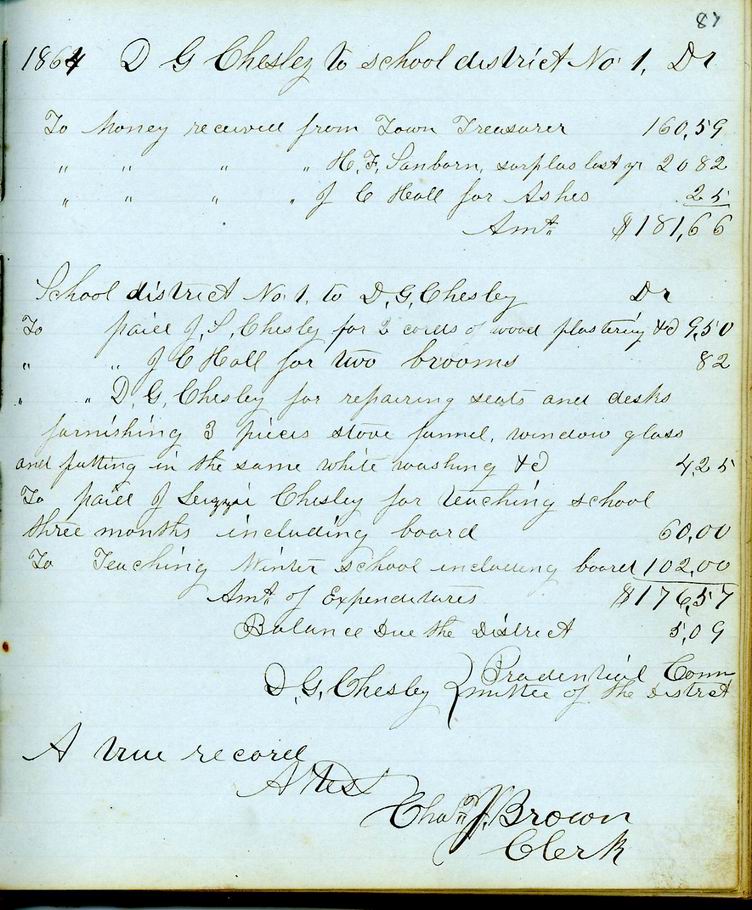 87
1864 D G Chesley to school district No 1, Dr
To Money received from Town Treasurer 160,59
" " " " H. F. Sanborn, surplus last yr 20 82
" " " " J C Hall for Ashes 25
Amt $181,66
School district No 1, to D, G, Chesley Dr
To paid J, S, Chesley for 2 cords of wood plastering &c 9,50
" " J C Hall for two brooms 82
" " D, G, Chesley for repairing seats and desks
furnishing 3 pieces stove funnel, window glass
and putting in the same white washing &c 4,25
To paid J Chesley for teaching school
three months including board 60,00
To Teaching Winter school including board 102,00
Amt of Expenditures $176,57
Balance Due the District 5,09
D, G, Chesley { Prudential Com
mittee of the district
A true record
Attest
Chas J. Brown
Clerk